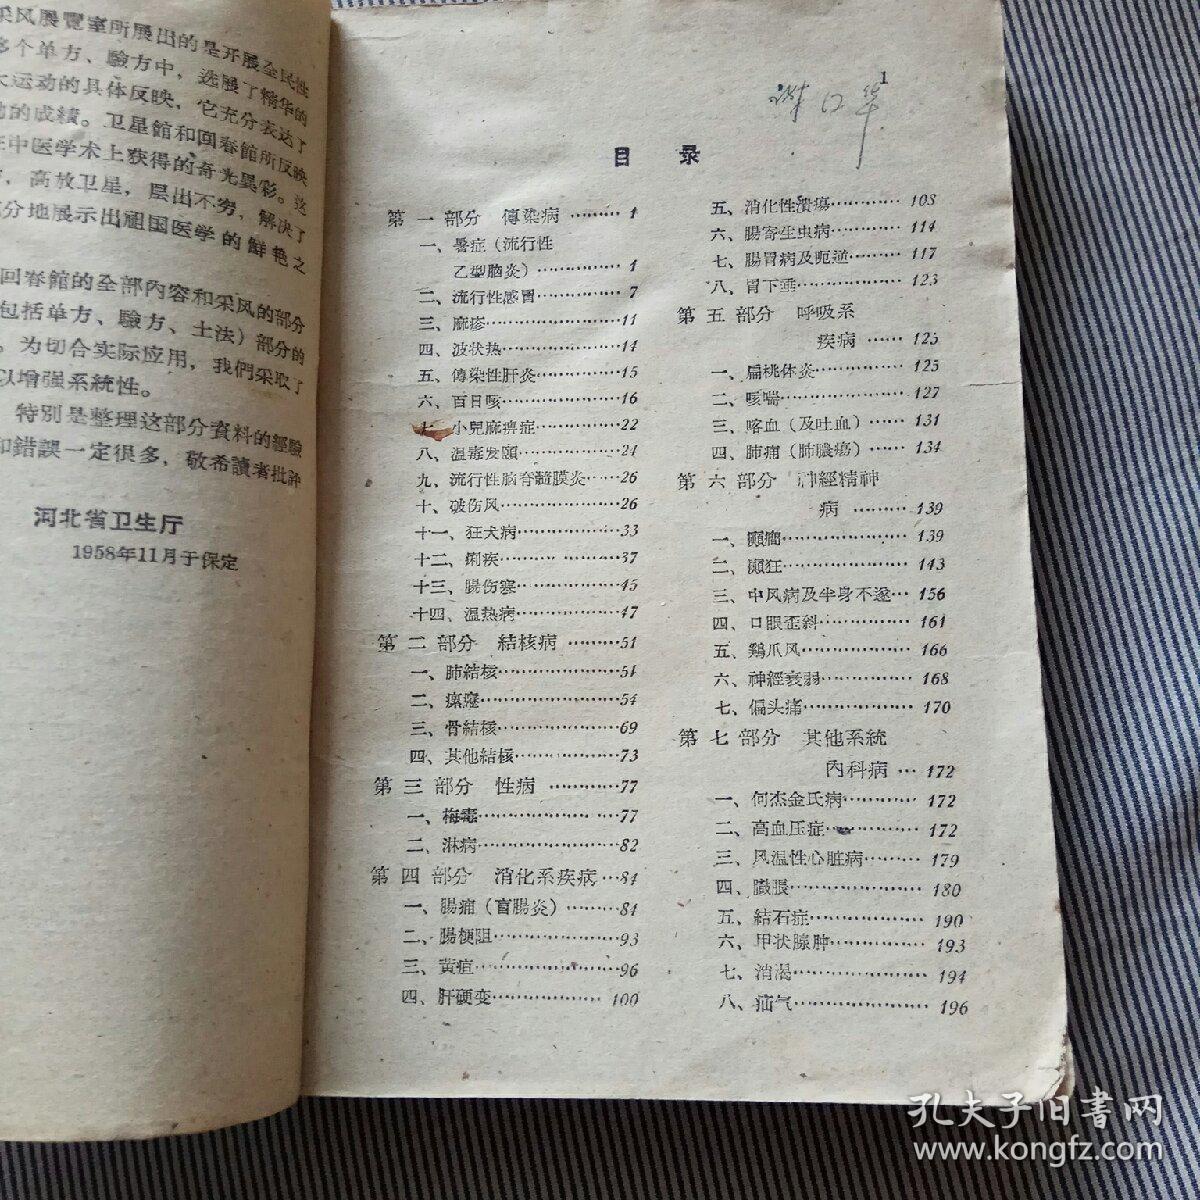 采风展覽室所展出的是开展全民性
多个单方、驗方中，选展了精华的
大运动的具体反映，它充分表达了
的成績。卫星館和回春館所反映
中医学术上获得的奇光異彩。这
，高放卫星，层出不穷，解决了
分地展示出祖国医学的鮮艳之
回春館的全部內容和采风的部分
包括单方、驗方、土法）部分的
。为切合实际应用，我們采取了
以增强系統性。
特別是整理这部分資料的經驗
和錯誤一定很多，敬希讀者批評
河北省卫生厅
1958年11月于保定
1
目 录
第一部分 傳染病………1
一、暑症（流行性
乙型脑炎）…………1
二、流行性感冒…………7
三、麻疹…………11
四、波状热…………14
五、傳染性肝炎…………15
六、百日咳…………16
七、小兒麻痹症…………22
八、温毒发頤…………24
九、流行性脑脊髓膜炎……26
十、破伤风…………26
十一、狂犬病…………33
十二、痢疾…………37
十三、腸伤寒…………45
十四、温热病…………47
第二部分 結核病………51
一、肺結核…………51
二、瘰癧…………54
三、骨結核…………69
四、其他結核…………73
第三部分 性病…………77
一、梅毒…………77
二、淋病…………82
第四部分 消化系疾病…84
一、腸痈（盲腸炎）………84
二、腸梗阻…………93
三、黄疸…………96
四、肝硬变…………100
五、消化性潰瘍…………108
六、腸寄生虫病…………114
七、腸胃病及呃逆…………117
八、胃下垂…………123
第五部分 呼吸系
疾病……125
一、扁桃体炎…………125
二、咳喘…………127
三、喀血（及吐血）………131
四、肺痈（肺膿瘍）………134
第六部分 神經精神
病………139
一、癲癇…………139
二、癲狂…………143
三、中风病及半身不遂…156
四、口眼歪斜…………161
五、鷄爪风…………166
六、神經衰弱…………168
七、偏头痛…………170
第七部分 其他系統
內科病…172
一、何杰金氏病…………172
二、高血压症…………172
三、风湿性心脏病………179
四、臌脹…………180
五、結石症…………190
六、甲状腺肿…………193
七、消渴…………194
八、疝气…………196
孔夫子旧書网
www.kongfz.com